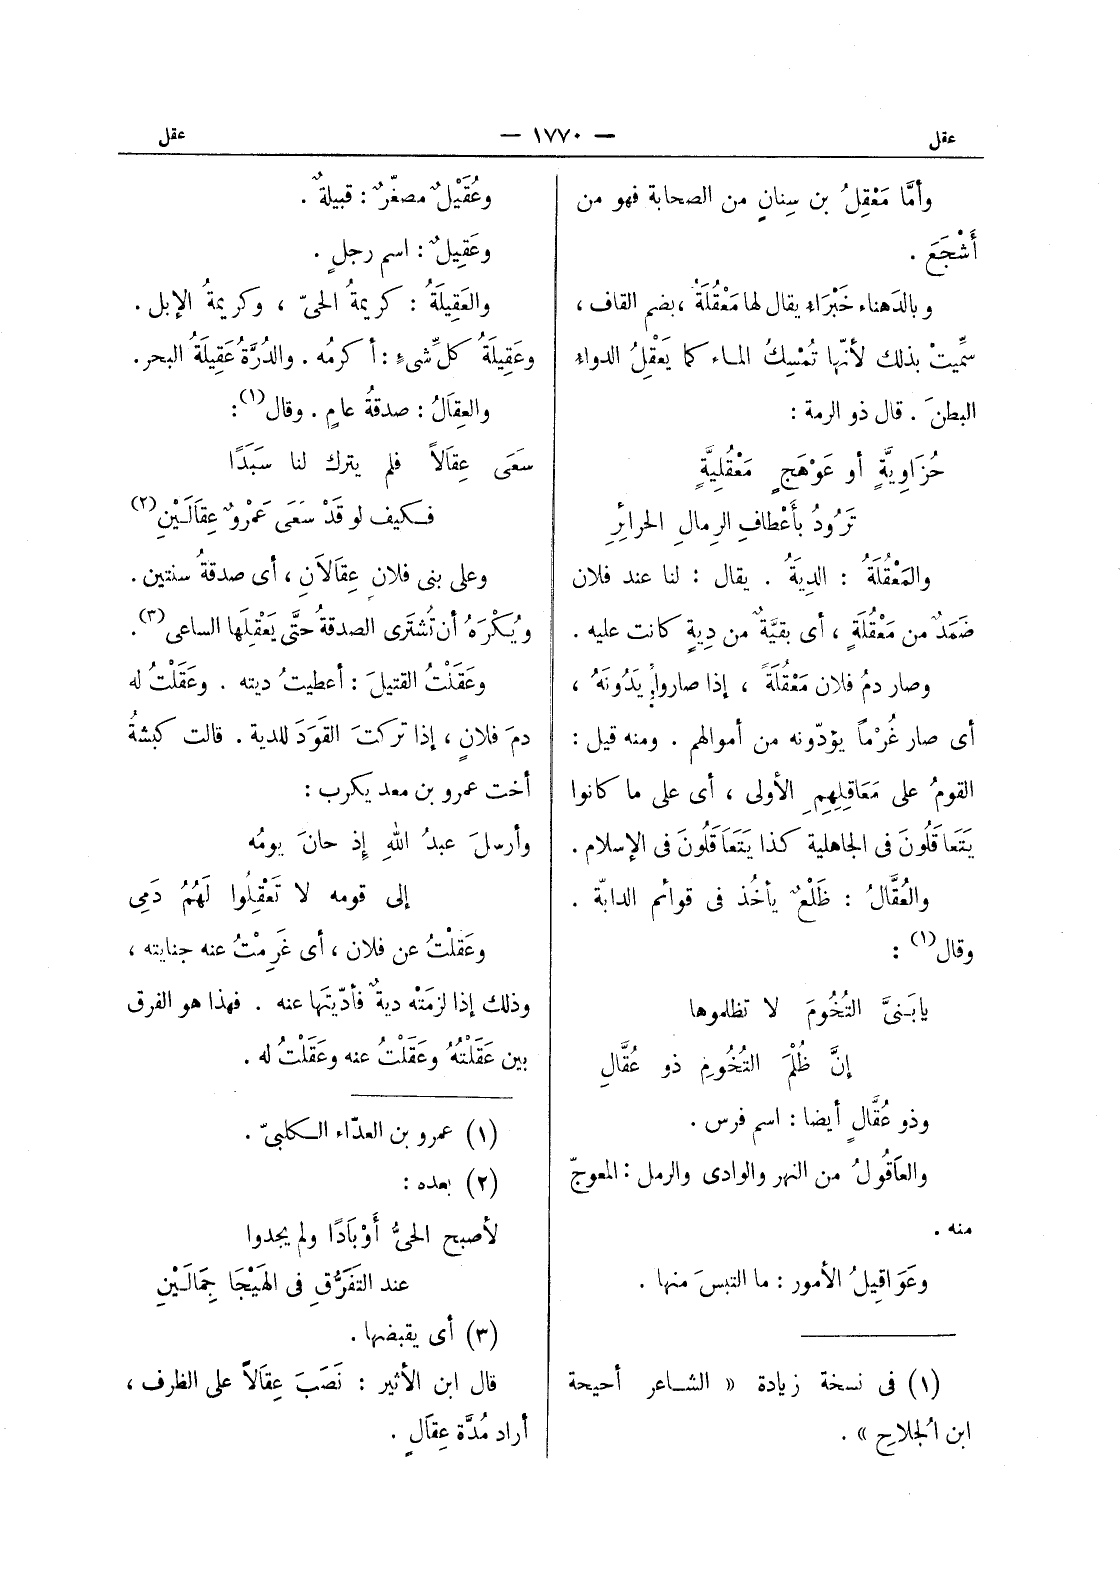 عقل — ١٧٧٠ — عقل
وأمَّا مَعْقِلُ بن سِنانٍ من الصحابة فهو من
أَشْجَعَ .
وبالدَهناء خَبْرَاءِ يقال لها مَعْقُلَةُ ، بضم القاف ،
سمِّيتْ بذلك لأنّها تُمْسِكُ الماء كما يَعْقِلُ الدواءِ
البطنَ . قال ذو الرمة :
حُزَاوِيَّةٍ أو عَوْهَجٍ مَعْقُلِيَّةٍ
تَرُودُ بأَعْطافِ الرِمالِ الحرائرِ
والمَعْقُلَةُ : الدِيَةُ . يقال : لنا عند فلان
ضَمَدٌ من مَعْقُلَةٍ ، أى بقيَّةٌ من دِيةٍ كانت عليه .
وصار دمُ فلان مَعْقُلَةً ، إذا صاروا يَدُونَهُ ،
أى صار غُرْماً يؤدّونه من أموالهم . ومنه قيل :
القومُ على مَعَاقِلِهِمِ الأولى ، أى على ما كانوا
يَتَعَاقَلُونَ فى الجاهلية كذا يَتَعَاقَلُونَ فى الإسلام .
والعُقَّالُ : ظَلْعٌ يأخُذ فى قوائم الدابّة .
وقال(١) :
يابَنىَّ التُخُومَ لا تظلموها
إنَّ ظُلْمَ التُخُومِ ذو عُقَّالِ
وذو عُقَّالٍ أيضا : اسم فرس .
والعَاقُولُ من النهر والوادى والرمل : المعوجّ
منه .
وعَوَاقِيلُ الأمور : ما التبسَ منها .
(١) فى نسخة زيادة « الشاعر أحيحة
ابن الُجلاحِ » .
وعُقَيْلٌ مصغّرٌ : قبيلةٌ .
وعَقِيلٌ : اسم رجلٍ .
والعَقِيلَةُ : كريمةُ الحىّ ، وكريمةُ الإبل .
وعَقِيلَةُ كلِّ شىءٍ : أكرمُه . والدُرَّةُ عَقِيلَةُ البحر.
والعِقاَلُ : صدقةُ عامٍ . وقال(١) :
سَعَى عِقاَلاً فلم يترك لنا سَبَدًا
فكيف لو قَدْ سَعَى عَمْرٌو عِقاَلَيْنِ(٢)
وعلى بنى فلان عِقاَلاَنِ ، أى صدقةُ سنتين .
ويُكْرَهُ أن تُشترى الصدقةُ حتَّى يَعْقِلَها الساعى(٣).
وعَقَلْتُ القتيلَ : أعطيتُ ديته . وعَقَلْتُ له
دمَ فلانٍ ، إذا تركتَ القَوَدَ للدية . قالت كبشةُ
أخت عمرو بن معد يكرب :
وأرسلَ عبدُ اللهِ إذ حانَ يومُه
إلى قومه لا تَعْقِلُوا لَهُمُ دَمِى
وعَقَلْتُ عن فلان ، أى غَرِمْتُ عنه جنايته ،
وذلك إذا لزمَتْه ديةٌ فأدّيتَها عنه . فهذا هو الفرق
بين عَقَلْتُهُ وعَقَلْتُ عنه وعَقَلْتُ له .
(١) عمرو بن العدّاء الكلبىّ .
(٢) بعده :
لأصبح الحىُّ أَوْبَادًا ولم يجدوا
عند التَفَرُّقِ فى الهَيْجَا جِمَالَيْنِ
(٣) أى يقبضها .
قال ابن الأثير : نَصَبَ عِقاَلاً على الظرف ،
أراد مُدَّة عِقاَلٍ .